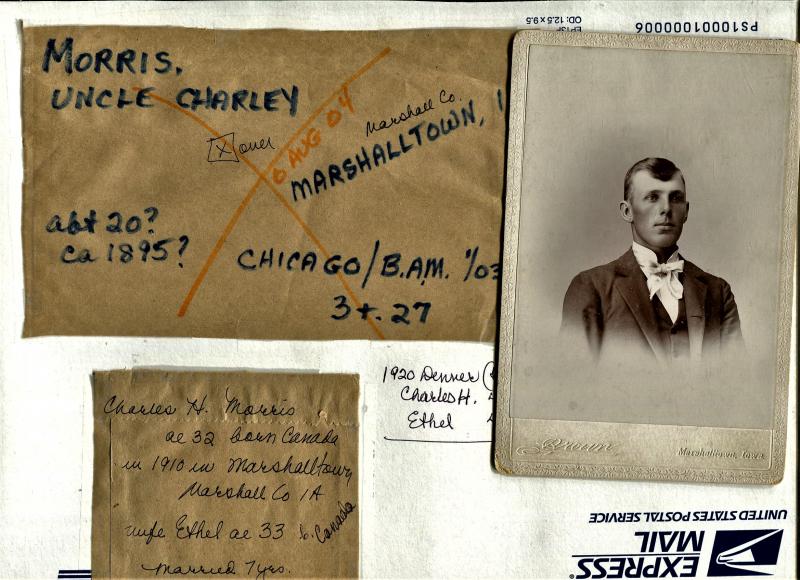 MORRIS,
UNCLE CHARLEY
X over
6 AUG 04
Marshall Co.
MARSHALLTOWN, I
abt 20?
ca 1895?
CHICAGO/B.AM. 1/03
3+. 27
1920 Denver
Charles H.
Ethel
Charles H. Morris
ae 32 born Canada
in 1910 in Marshalltown,
Marshall Co IA
wife Ethel ae 33 b. Canada
married 7 yrs.
Brown
Marshalltown, Iowa
PS10001000006
EP13F
OD: 12.5 x 9.5
UNITED STATES POSTAL SERVICE
EXPRESS
MAIL